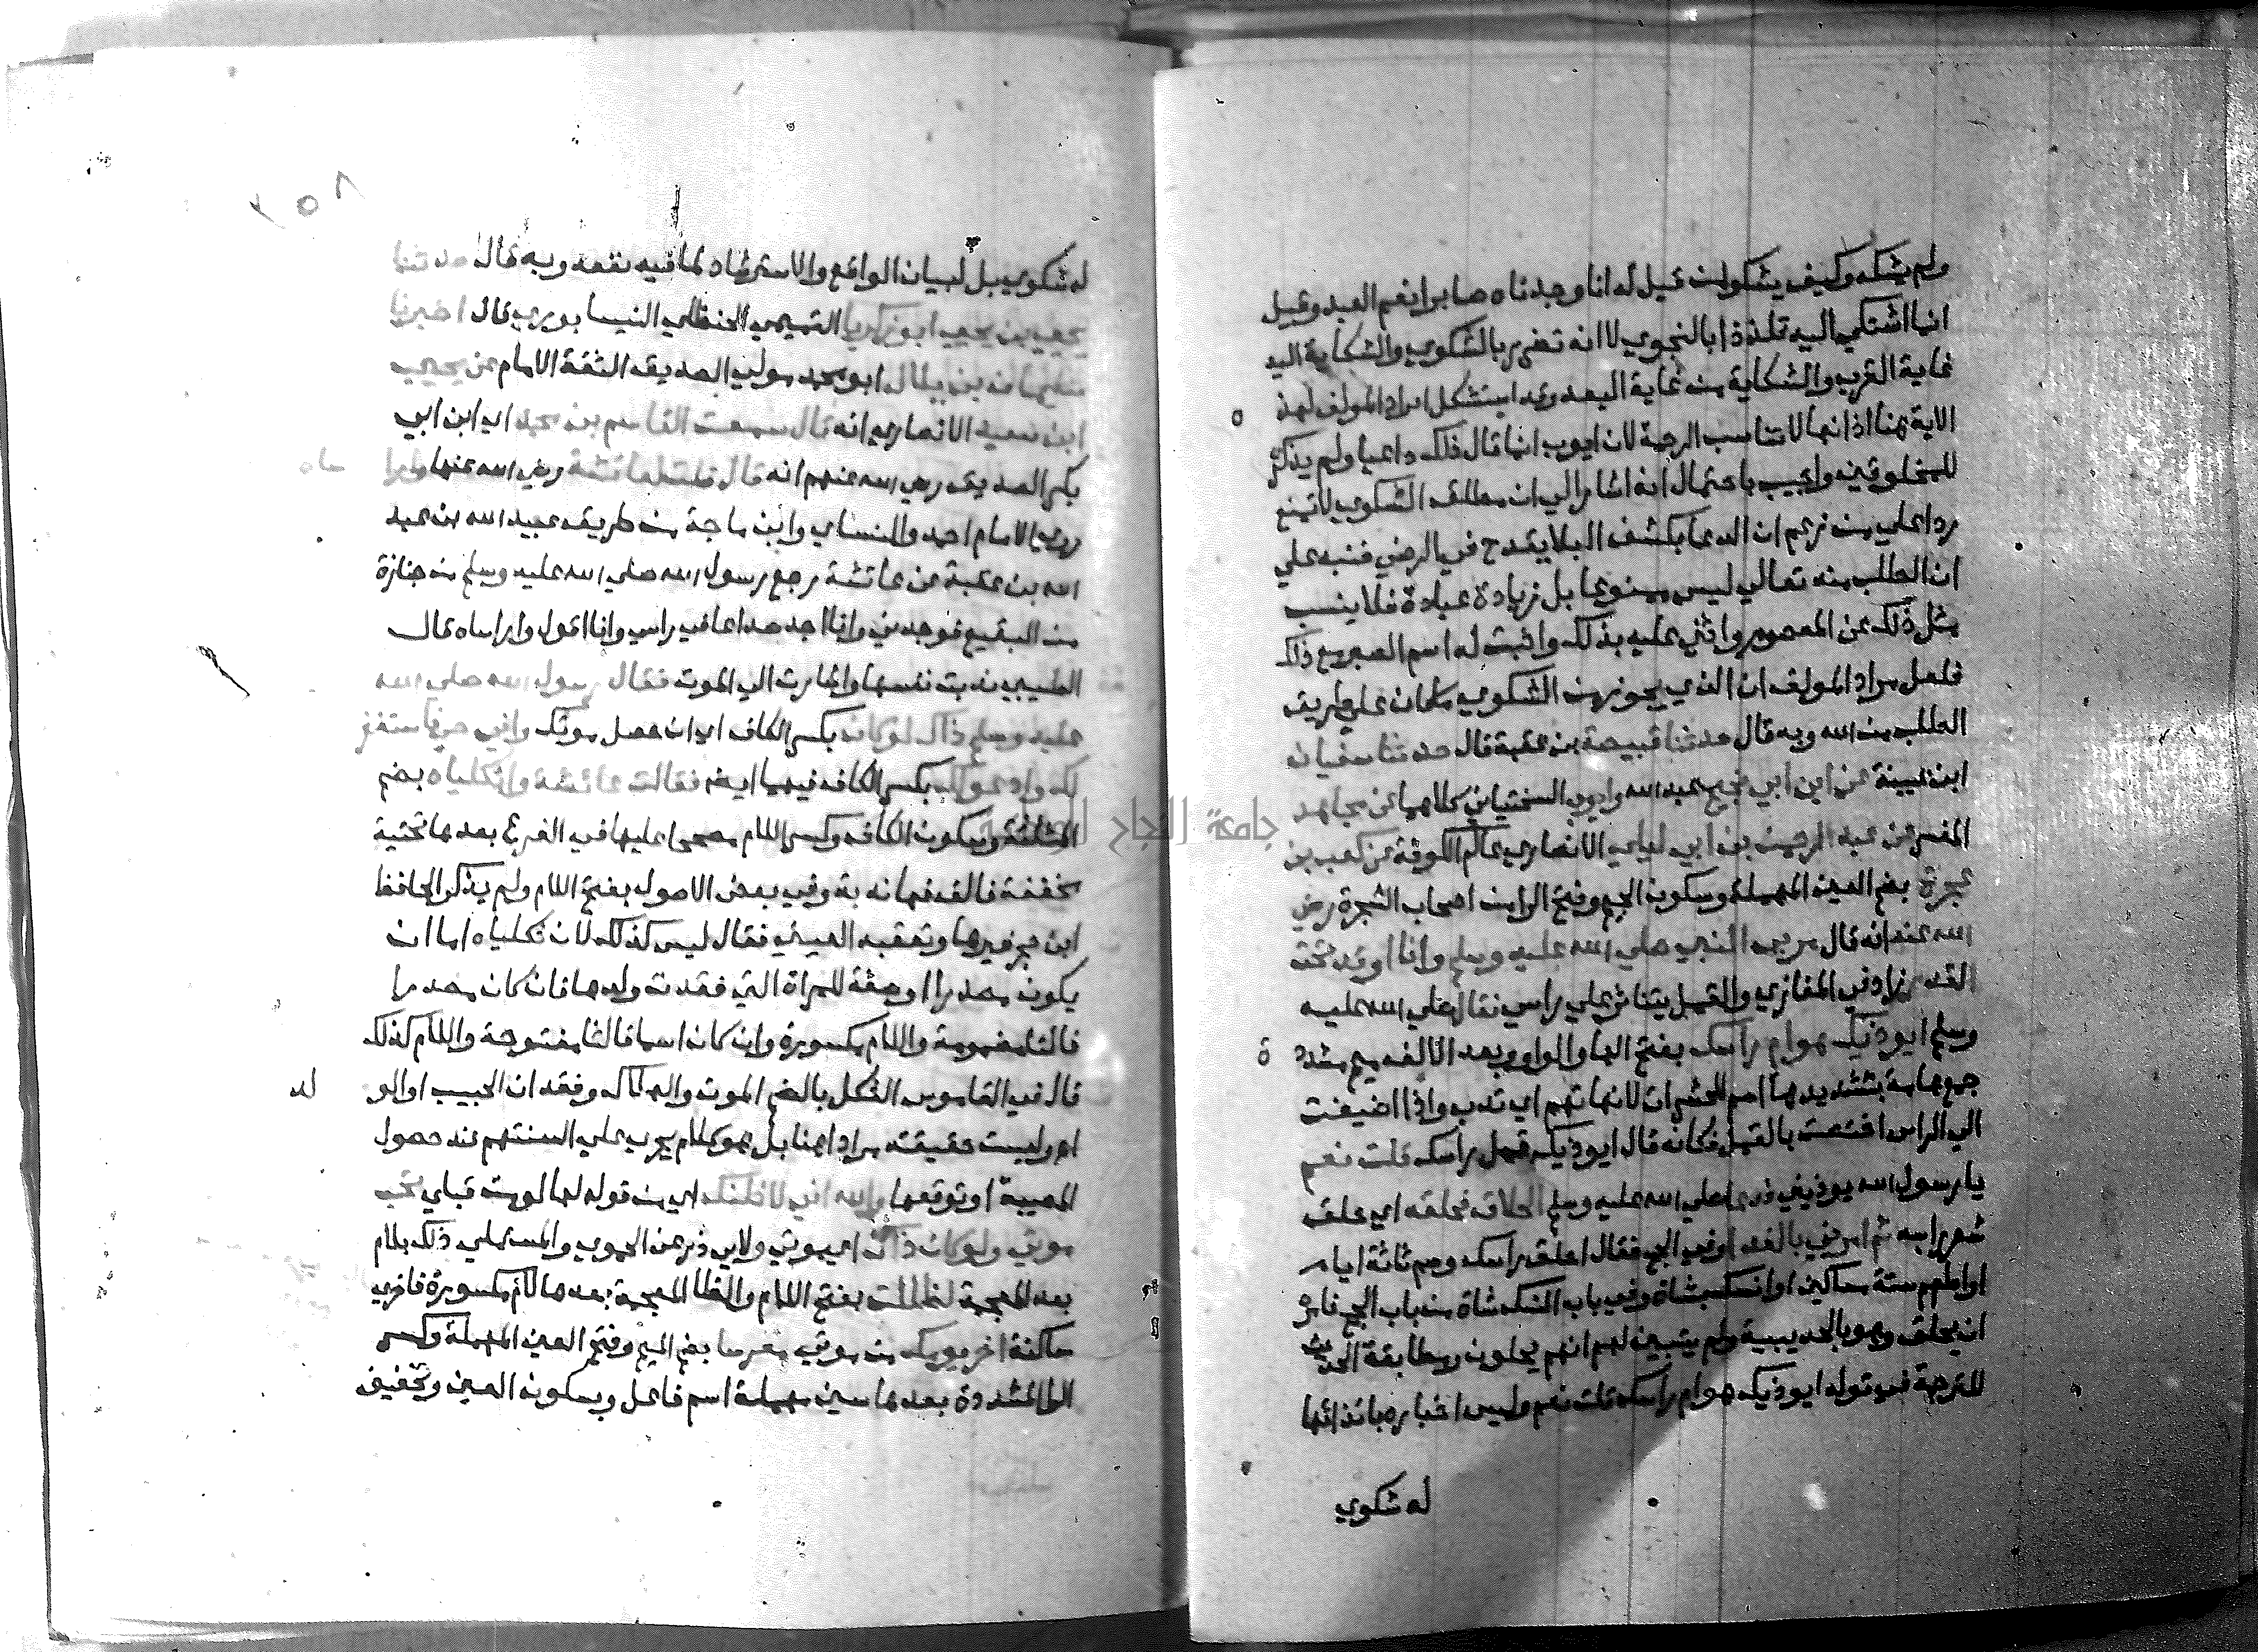 ولم يشكه وكيف يشكو من قيل له انا وجدناه صابرا نعم العبد وقيل
انما اشتكي اليه تلذذا بالنجوي لا انه تضرر بالشكوي والشكاية اليه
غاية القرب والشكاية منه غاية البعد وقد استشكل ايراد المولف لهذه
الاية هنا اذ انها لا تناسب الترجمة لان ايوب انما قال ذلك داعيا ولم يذكره
للمخلوقين واجيب باحتمال انه اشار الي ان مطلق الشكوي لا تمنع
ردا علي من زعم ان الدعا بكشف البلا يقدح في الرضي فنبه علي
ان الطلب منه تعالي ليس ممنوعا بل زيادة عبادة فلا ينسب
مثل ذلك عن المعصوم واثني عليه بذلك واثبت له اسم الصبر مع ذلك
فلعل مراد المولف ان الذي يجوز من الشكوي ما كان علي طريق
الطلب من الله وبه قال حدثنا قبيصة بن عقبة قال حدثنا سفيان
ابن عيينة عن ابن ابي نجيح عبد الله وايوب السختياني كلاهما عن مجاهد
المفسر عن عبد الرحمن بن ابي ليلي الانصاري عالم الكوفة عن كعب بن
عجرة بضم العين المهملة وسكون الجيم وفتح الرا من اصحاب الشجرة رضي
الله عنه انه قال مر بي النبي صلي الله عليه وسلم وانا اوقد تحت
القدر زاد في المغازي والقمل يتناثر علي راسي فقال صلي الله عليه
وسلم ايوذيك هوام راسك بفتح الها والواو وبعد الالف ميم مشددة
جمع هامة بتشديدها اسم للحشرات لانها تهم اي تدب واذا اضيفت
الي الراس اختصت بالقمل فكانه قال ايوذيك قمل راسك قلت نعم
يا رسول الله يوذيني فدعا صلي الله عليه وسلم الحلاق فحلقه اي حلق
شعر راسه ثم امرني بالفدا وفي الحج فقال احلق راسك وصم ثلثة ايام
او اطعم ستة مساكين او انسك بشاة وفي باب النسك شاة من باب الحج فامره
ان يحلق وهو بالحديبية ولم يتبين لهم انهم يحلون ومطابقة الحديث
للترجمة في قوله ايوذيك هوام راسك قلت نعم وليس اخباره بايذائها
له شكوي
له شكوي بل لبيان الواقع والاسترشاد لما فيه نفعه وبه قال حدثنا
يحيي بن يحيي ابو زكريا التميمي الحنظلي النيسابوري قال اخبرنا
سليمان بن بلال ابو محمد مولي الصديق الثقة الامام عن يحيي
ابن سعيد الانصاري انه قال سمعت القاسم بن محمد اي ابن ابي
بكر الصديق رضي الله عنهم انه قال قالت عائشة رضي الله عنها وارا
ساه
روي الامام احمد والنساي وابن ماجة من طريق عبيد الله بن عبد
الله بن عتبة عن عائشة رجع رسول الله صلي الله عليه وسلم من جنازة
من البقيع فوجدني وانا اجد صداعا في راسي وانا اقول واراساه قال
الطيبي ندبت نفسها واشارت الي الموت فقال رسول الله صلي الله
عليه وسلم ذاك لو كان بكسر الكاف اي ان حصل موتك وانا حي فاستغفر
لك وادعو لك بكسر الكاف فيهما ايضا فقالت عائشة واثكلياه بضم
المثلثة وسكون الكاف وكسر اللام مصححا عليها في الفرع بعدها تحتية
مخففة فالف فها ندبة وفي بعض الاصول بفتح اللام ولم يذكر الحافظ
ابن حجر غيرها وتعقبه العيني فقال ليس كذلك لان ثكلياه اما ان
يكون مصدرا او صفة للمراة التي فقدت ولدها فان كان مصدرا
فالثا مضمومة واللام مكسورة وان كان اسما فالثا مفتوحة واللام كذلك
قال في القاموس الثكل بالضم الموت والهلاك وفقدان الحبيب او الو
لد
اه وليست حقيقته مرادا هنا بل هو كلام يجري علي السنتهم عند حصول
المصيبة او توقعها والله اني لاظنك اي من قوله لها لو مت قبلي تحب
موتي ولو كان ذاك اي موتي ولابي ذر عن الحموي والمستملي ذلك بلام
بعد المعجمة لظللت بفتح اللام والظا المعجمة بعدها لام مكسورة فاخري
ساكنة اخر يومك من موتي معرسا بضم الميم وفتح العين المهملة وكسر
الرا المشددة بعدها سين مهملة اسم فاعل وبسكون العين وتخفيف